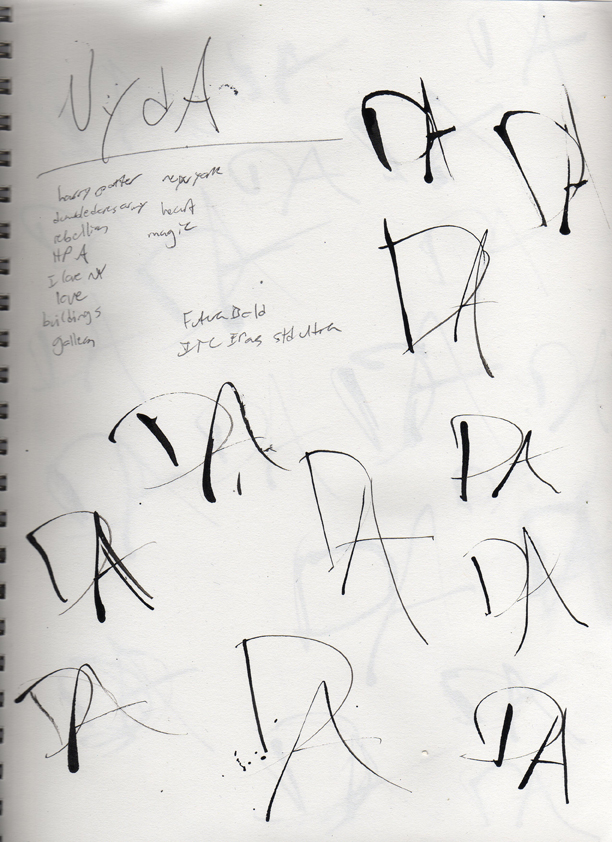 NYdA
harry potter newyork
dumbledores army heart
rebellion magic
HPA
I love NY
love
buildings
gallery
Futura Bold
ITC Eras std ultra
DA
DA
DA
DA
DA
DA
DA
DA
DA
DA
DA